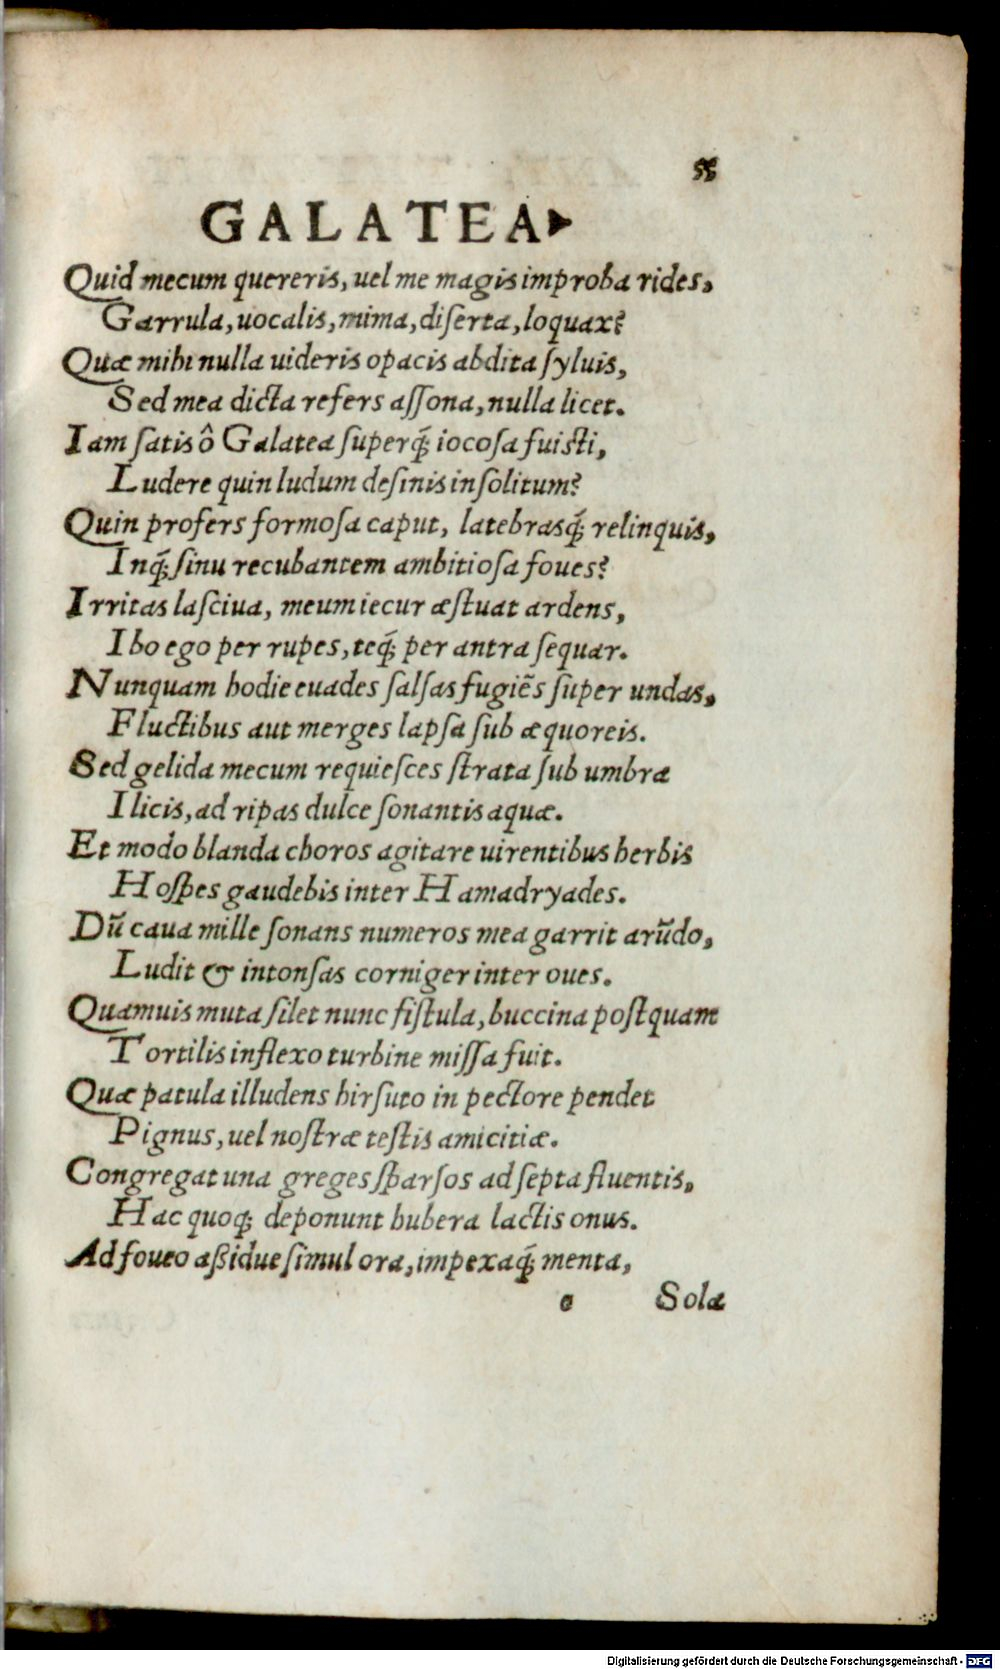 55
GALATEA
Quid mecum quereris, uel me magis improba rides,
Garrula, uocalis, mima, diserta, loquax?
Quæ mihi nulla uideris opacis abdita syluis,
Sed mea dicta refers assona, nulla licet.
Iam satis ô Galatea superq́; iocosa fuisti,
Ludere quin ludum desinis insolitum?
Quin profers formosa caput, latebrasq́; relinquis,
Inq́; sinu recubantem ambitiosa foues?
Irritas lasciua, meum iecur æstuat ardens,
Ibo ego per rupes, teq́; per antra sequar.
Nunquam hodie euades salsas fugiẽs super undas,
Fluctibus aut merges lapsa sub æquoreis.
Sed gelida mecum requiesces strata sub umbra
Ilicis, ad ripas dulce sonantis aquæ.
Et modo blanda choros agitare uirentibus herbis
Hospes gaudebis inter Hamadryades.
Dũ caua mille sonans numeros mea garrit arũdo,
Ludit & intonsas corniger inter oues.
Quamuis muta silet nunc fistula, buccina postquam
Tortilis inflexo turbine missa fuit.
Quæ patula illudens hirsuto in pectore pendet
Pignus, uel nostræ testis amicitiæ.
Congregat una greges sparsos ad septa fluentis,
Hac quoq; deponunt hubera lactis onus.
Ad foueo aßidue simul ora, impexaq́; menta,
e Sola
Digitalisierung gefördert durch die Deutsche Forschungsgemeinschaft - DFG